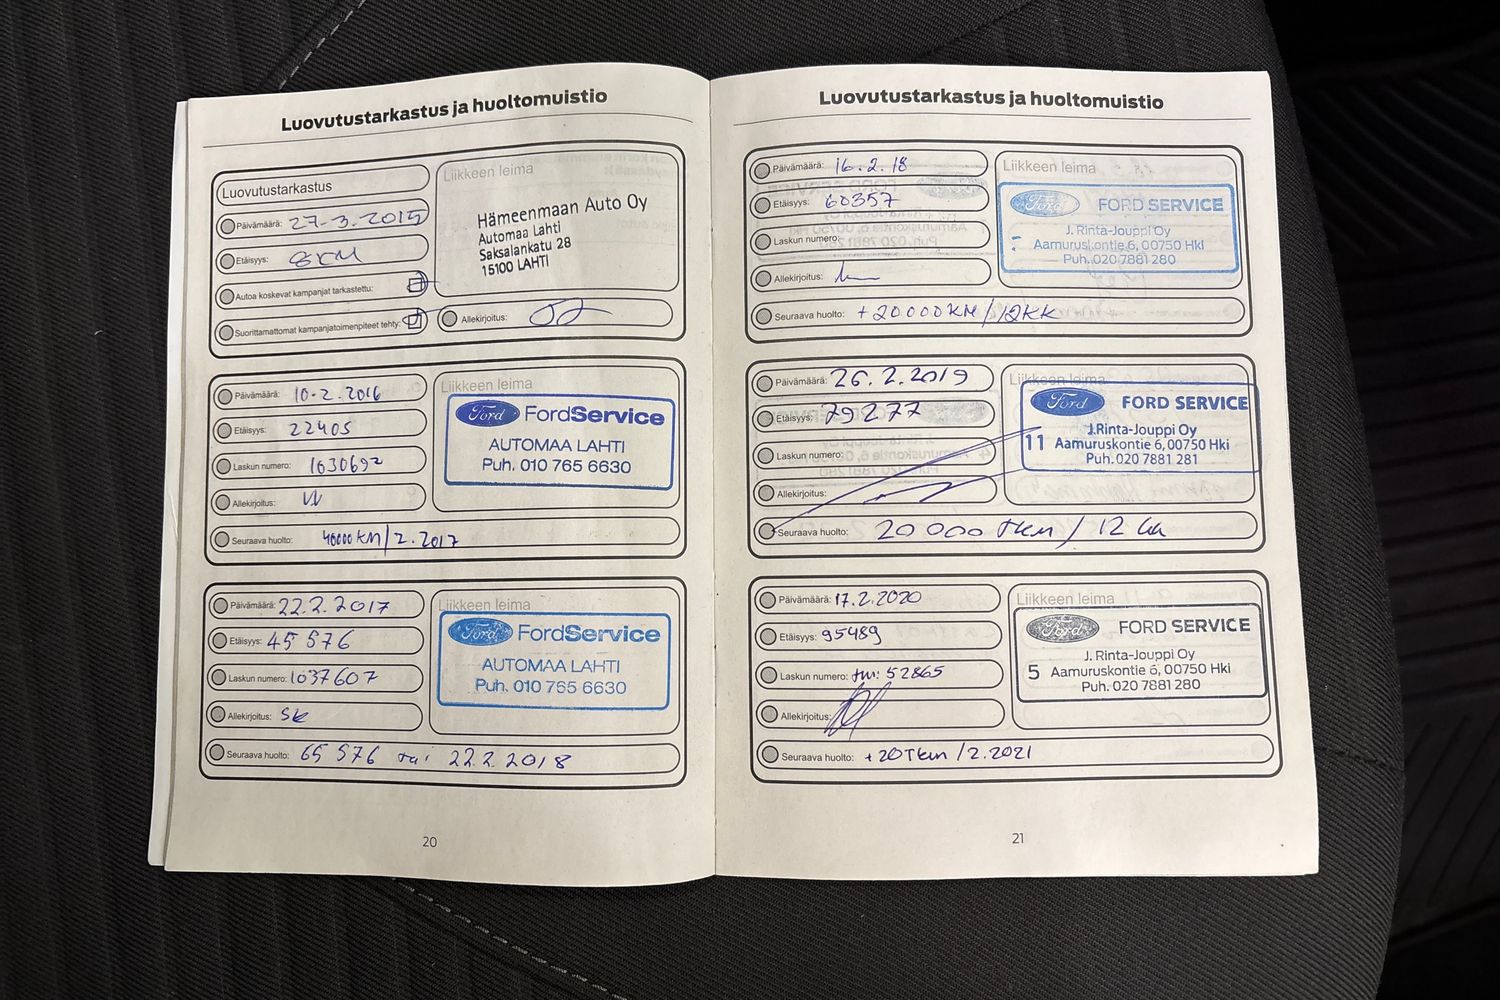 Luovutustarkastus ja huoltomuistio
Luovutustarkastus
Päivämäärä: 27.3.2015
Etäisyys: 8KM
Autoa koskevat kampanjat tarkastettu:
Suorittamattomat kampanjatoimenpiteet tehty:
Liikkeen leima
Hämeenmaan Auto Oy
Automaa Lahti
Saksalankatu 28
15100 LAHTI
Allekirjoitus:
Päivämäärä: 10.2.2016
Etäisyys: 22405
Laskun numero: 1030692
Allekirjoitus:
Liikkeen leima
Ford FordService
AUTOMAA LAHTI
Puh. 010 765 6630
Seuraava huolto: 40000 KM/2.2017
Päivämäärä: 22.2.2017
Etäisyys: 45 576
Laskun numero: 1037607
Allekirjoitus: Sk
Liikkeen leima
Ford FordService
AUTOMAA LAHTI
Puh. 010 765 6630
Seuraava huolto: 65 576 tai 22.2.2018
20
Luovutustarkastus ja huoltomuistio
Päivämäärä: 16.2.18
Etäisyys: 60357
Laskun numero:
Allekirjoitus:
Liikkeen leima
Ford FORD SERVICE
J. Rinta-Jouppi Oy
Aamuruskontie 6, 00750 Hki
Puh. 020 7881 280
Seuraava huolto: +20000KM/12KK
Päivämäärä: 26.2.2019
Etäisyys: 79277
Laskun numero:
Allekirjoitus:
Liikkeen leima
Ford FORD SERVICE
J.Rinta-Jouppi Oy
11 Aamuruskontie 6, 00750 Hki
Puh. 020 7881 281
Seuraava huolto: 20 000 / 12
Päivämäärä: 17.2.2020
Etäisyys: 95489
Laskun numero: tm: 52865
Allekirjoitus:
Liikkeen leima
Ford FORD SERVICE
J. Rinta-Jouppi Oy
5 Aamuruskontie 6, 00750 Hki
Puh. 020 7881 280
Seuraava huolto: +20Tkm/2.2021
21